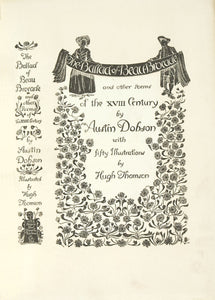 The
Ballad
of
Beau
Brocade
and other
Poems
by
Austin
Dobson
Illustrated
by
Hugh
Thomson
The Ballad of Beau Brocade
and other Poems
of the XVIII Century
by
Austin Dobson
with
Fifty Illustrations
by
Hugh Thomson